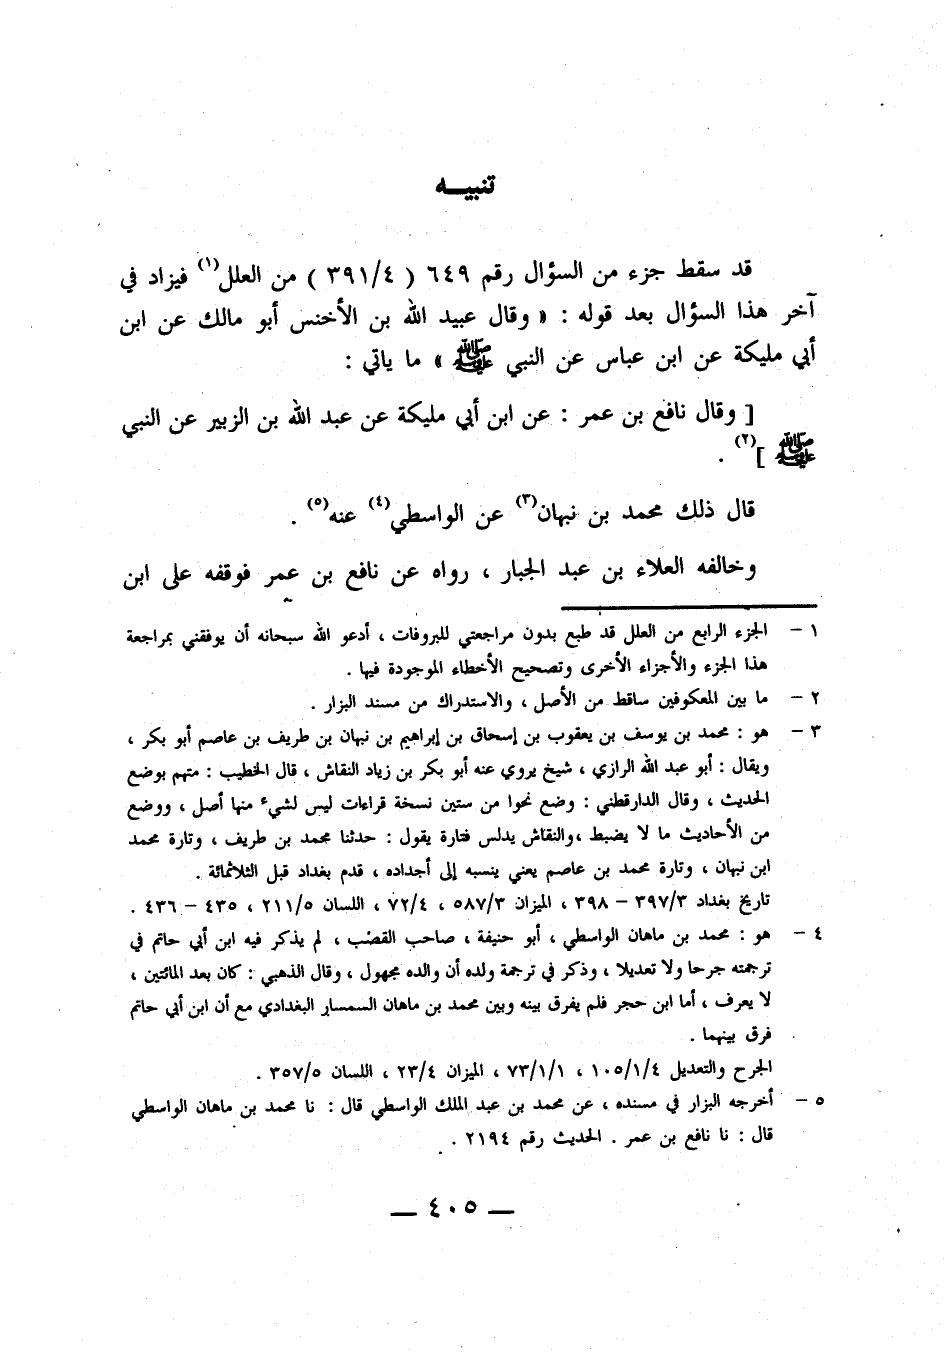 تنبيـــه
قد سقط جزء من السؤال رقم ٦٤٩ ( ٣٩١/٤ ) من العلل(١) فيزاد في
آخر هذا السؤال بعد قوله : « وقال عبيد الله بن الأخنس أبو مالك عن ابن
أبي مليكة عن ابن عباس عن النبي ﷺ » ما ياتي :
[ وقال نافع بن عمر : عن ابن أبي مليكة عن عبد الله بن الزبير عن النبي
ﷺ ](٢) .
قال ذلك محمد بن نبهان(٣) عن الواسطي(٤) عنه(٥) .
وخالفه العلاء بن عبد الجبار ، رواه عن نافع بن عمر فوقفه على ابن
١ – الجزء الرابع من العلل قد طبع بدون مراجعتي للبروفات ، أدعو الله سبحانه أن يوفقني بمراجعة
هذا الجزء والأجزاء الأخرى وتصحيح الأخطاء الموجودة فيها .
٢ – ما بين المعكوفين ساقط من الأصل ، والاستدراك من مسند البزار .
٣ – هو : محمد بن يوسف بن يعقوب بن إسحاق بن إبراهيم بن نبهان بن طريف بن عاصم أبو بكر ،
ويقال : أبو عبد الله الرازي ، شيخ يروي عنه أبو بكر بن زياد النقاش ، قال الخطيب : متهم بوضع
الحديث ، وقال الدارقطني : وضع نحوا من ستين نسخة قراءات ليس لشيء منها أصل ، ووضع
من الأحاديث ما لا يضبط ،والنقاش يدلس فتارة يقول : حدثنا محمد بن طريف ، وتارة محمد
ابن نبهان ، وتارة محمد بن عاصم يعني ينسبه إلى أجداده ، قدم بغداد قبل الثلاثمائة .
تاريخ بغداد ٣٩٧/٣ – ٣٩٨ ، الميزان ٥٨٧/٣ ، ٧٢/٤ ، اللسان ٢١١/٥ ، ٤٣٥ – ٤٣٦ .
٤ – هو : محمد بن ماهان الواسطي ، أبو حنيفة ، صاحب القصب ، لم يذكر فيه ابن أبي حاتم في
ترجمته جرحا ولا تعديلا ، وذكر في ترجمة ولده أن والده مجهول ، وقال الذهبي : كان بعد المائتين ،
لا يعرف ، أما ابن حجر فلم يفرق بينه وبين محمد بن ماهان السمسار البغدادي مع أن ابن أبي حاتم
فرق بينهما .
الجرح والتعديل ١٠٥/١/٤ ، ٧٣/١/١ ، الميزان ٢٣/٤ ، اللسان ٣٥٧/٥ .
٥ – أخرجه البزار في مسنده ، عن محمد بن عبد الملك الواسطي قال : نا محمد بن ماهان الواسطي
قال : نا نافع بن عمر . الحديث رقم ٢١٩٤ .
— ٤٠٥ —